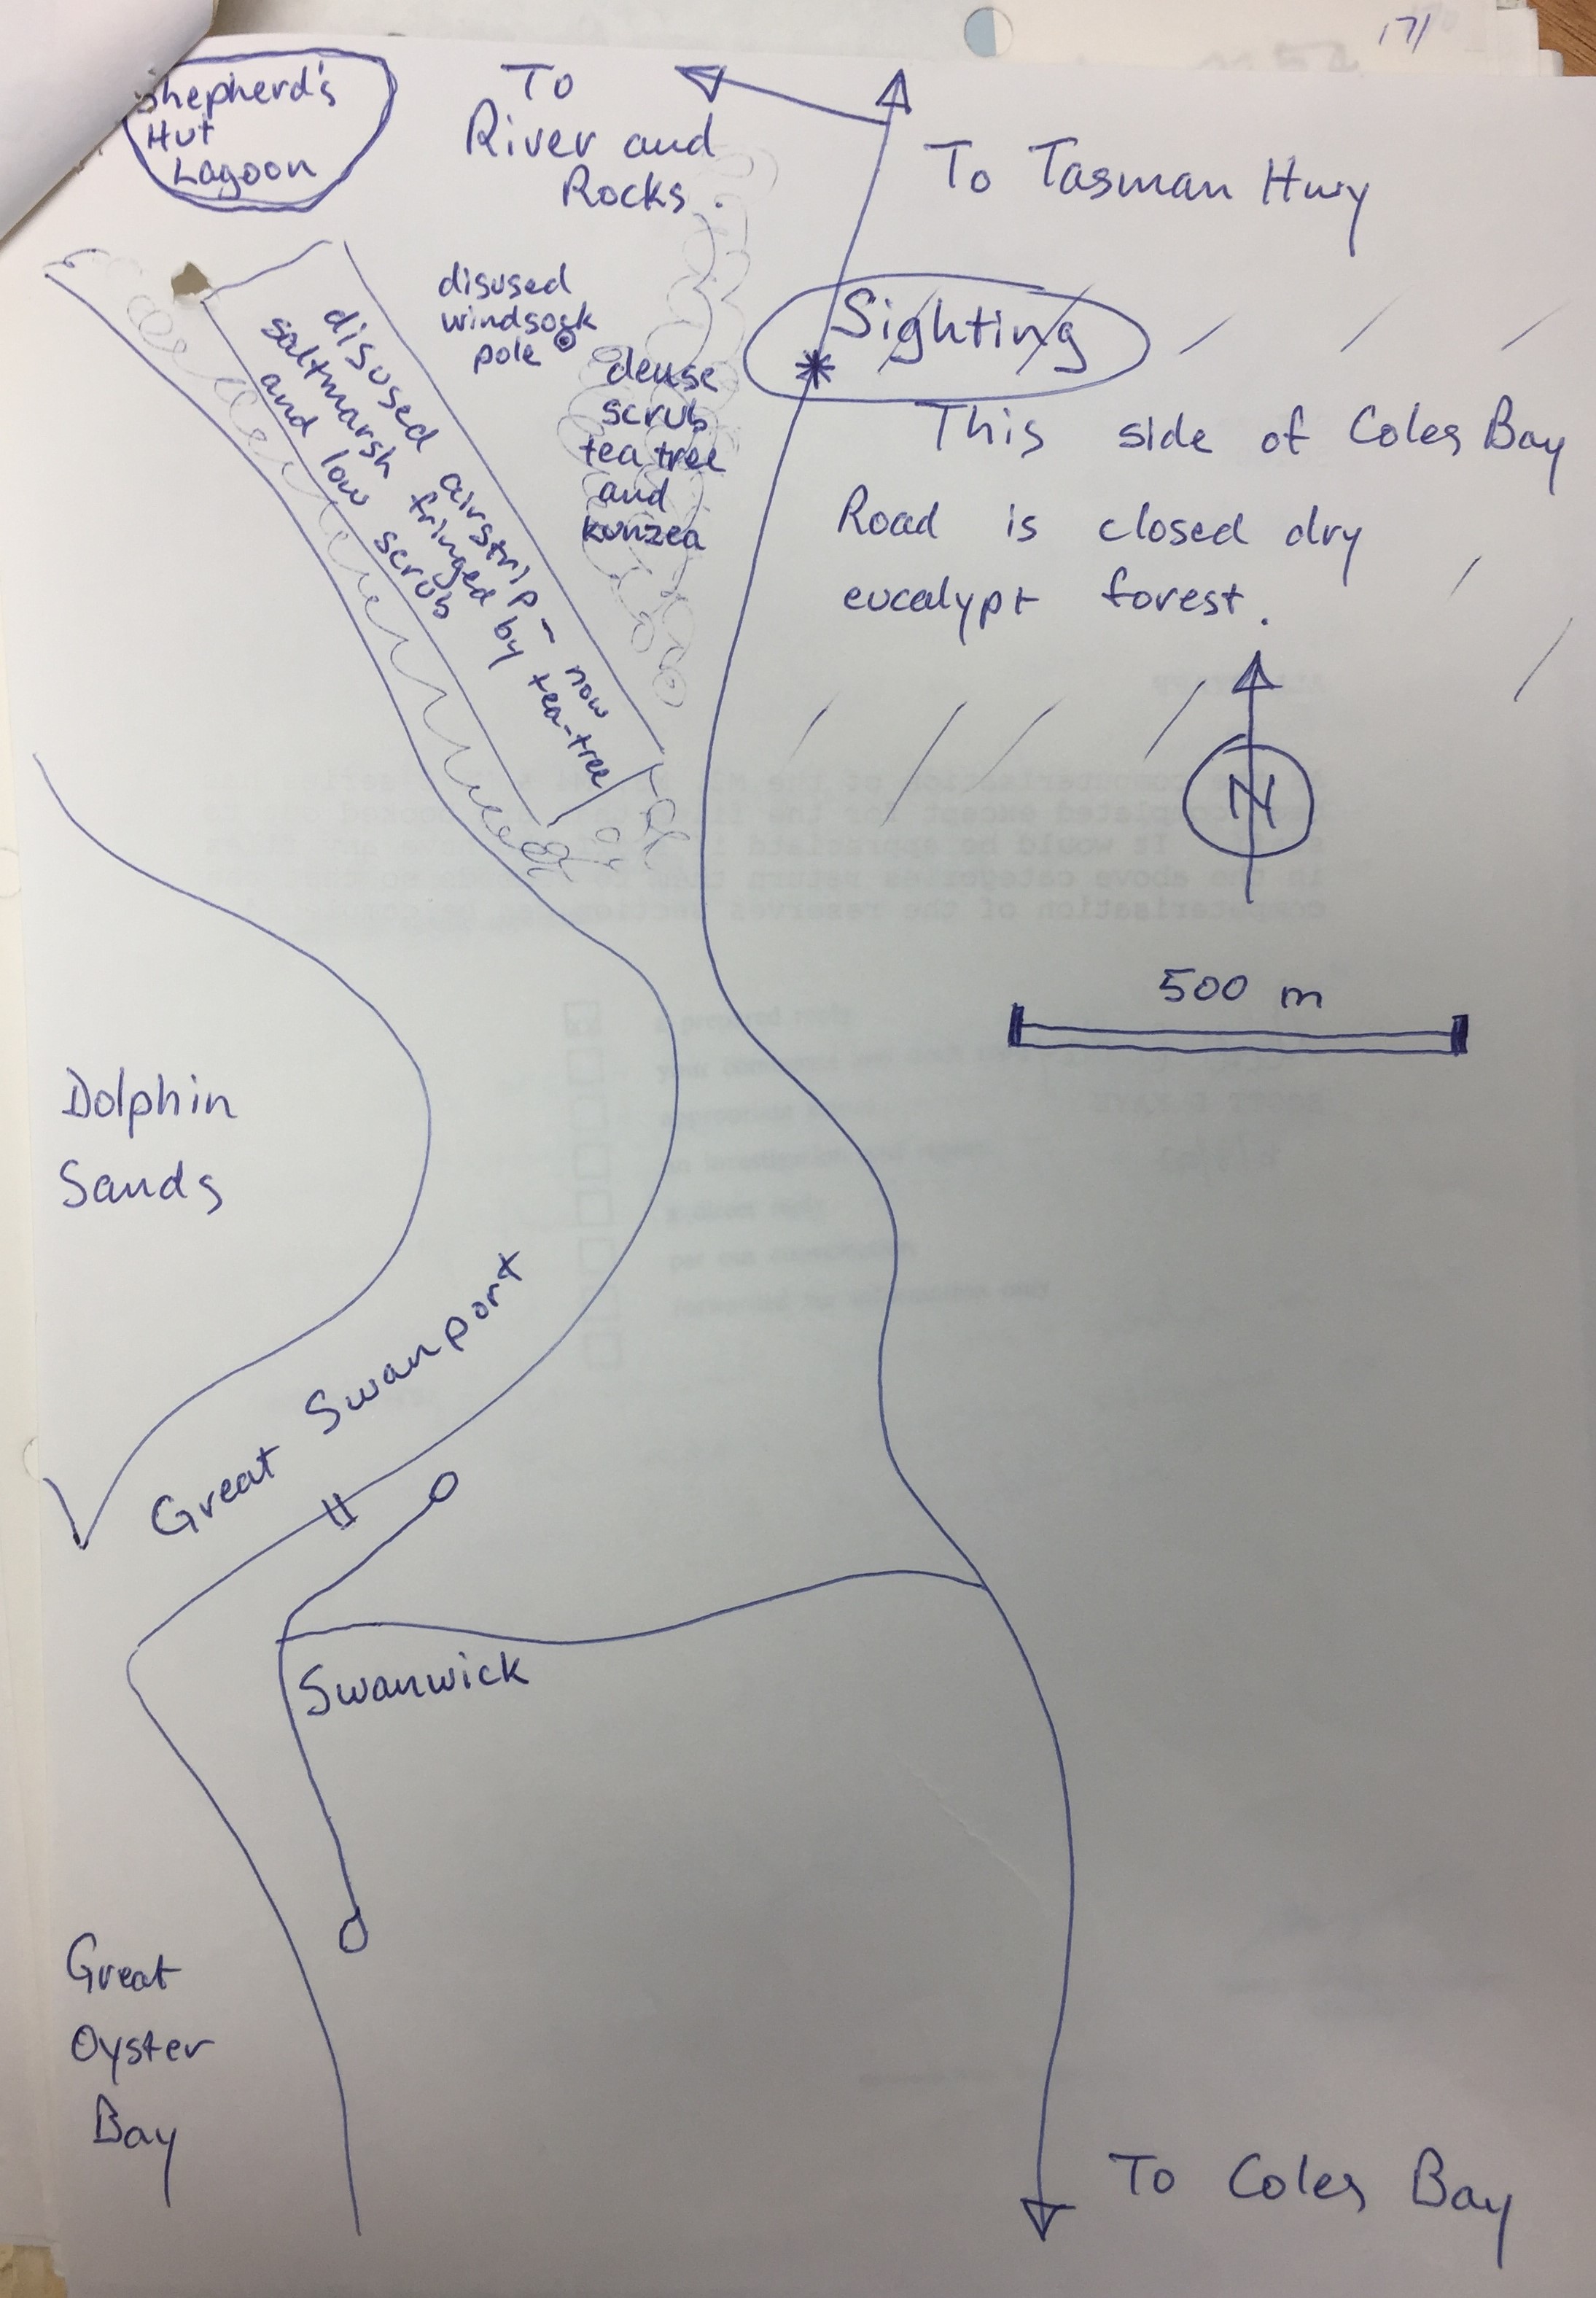 171
Shepherd's
Hut
Lagoon
To
River and
Rocks.
To Tasman Hwy
disused
windsock
pole
Sighting
dense
scrub
tea tree
and
kunzea
disused airstrip - now
saltmarsh fringed by tea-tree
and low scrub
This side of Coles Bay
Road is closed dry
eucalypt forest.
N
500 m
Dolphin
Sands
Great Swanport
Swanwick
Great
Oyster
Bay
To Coles Bay